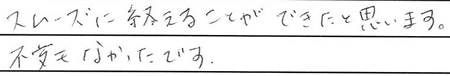 スムーズに終えることができたと思います。
不安もなかったです.